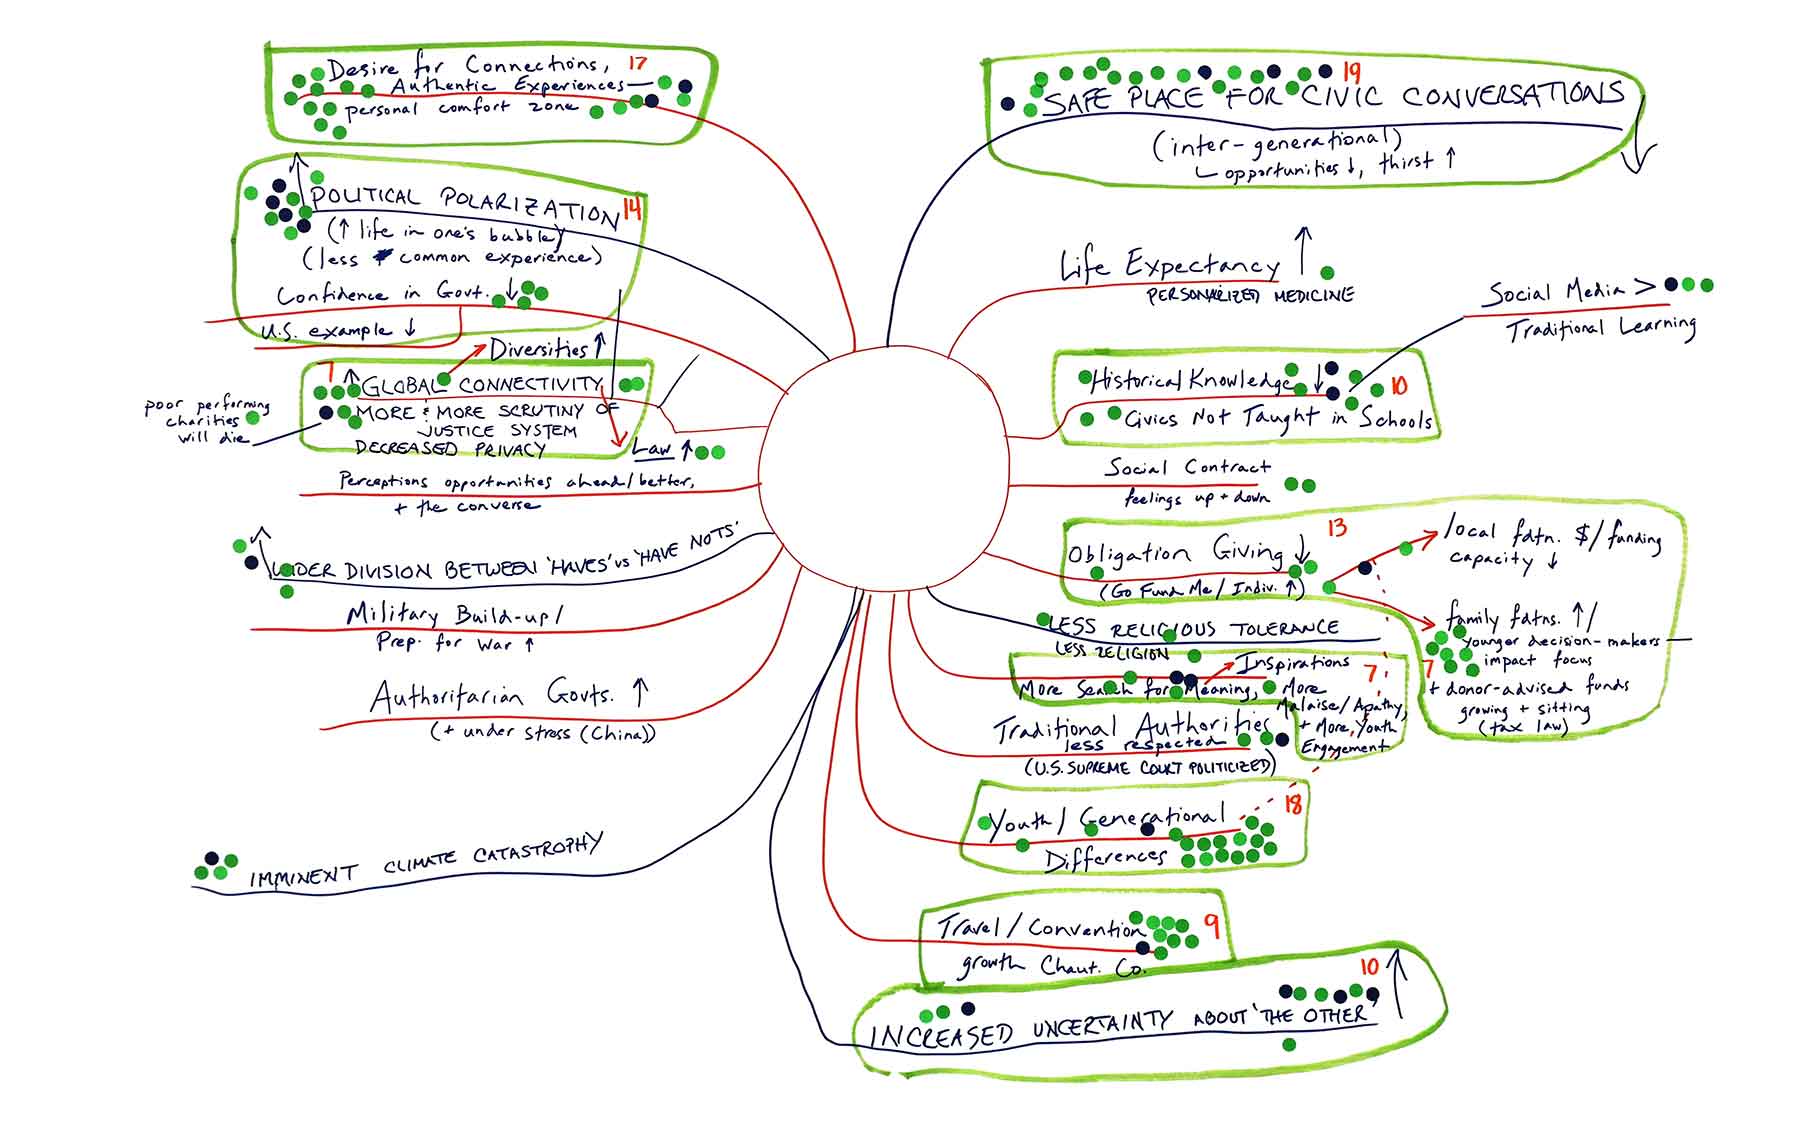 Desire for Connections, 17
Authentic Experiences
personal comfort zone
POLITICAL POLARIZATION 14
(↑ life in one's bubble)
(less common experience)
Confidence in Govt. ↓
U.S. example ↓
Diversities ↑
7
↑ GLOBAL CONNECTIVITY
MORE & MORE SCRUTINY OF
JUSTICE SYSTEM
DECREASED PRIVACY
poor performing
charities
will die
Law ↑
Perceptions opportunities ahead/better,
+ the converse
WIDER DIVISION BETWEEN 'HAVES' vs 'HAVE NOTS'
Military Build-up/
Prep. for War ↑
Authoritarian Govts. ↑
(+ under stress (China))
IMMINENT CLIMATE CATASTROPHY
19
SAFE PLACE FOR CIVIC CONVERSATIONS
(inter-generational)
opportunities ↓, thirst ↑
Life Expectancy ↑
PERSONARIZED MEDICINE
Social Media >
Traditional Learning
Historical Knowledge ↓ 10
Civics Not Taught in Schools
Social Contract
feelings up + down
13
Obligation Giving ↓
(Go Fund Me/ Indiv. ↑)
local fdtn. $/funding
capacity ↓
family fdtns. ↑/
younger decision-makers
impact focus
7
+ donor-advised funds
growing + sitting
(tax law)
LESS RELIGIOUS TOLERANCE
LESS RELIGION
Inspirations 7
More Search for Meaning, More
Malaise/Apathy,
+ More Youth
Engagement
Traditional Authorities
less respected
(U.S. SUPREME COURT POLITICIZED)
18
Youth/Generational
Differences
Travel/Convention 9
growth Chaut. Co.
10
INCREASED UNCERTAINTY ABOUT 'THE OTHER'